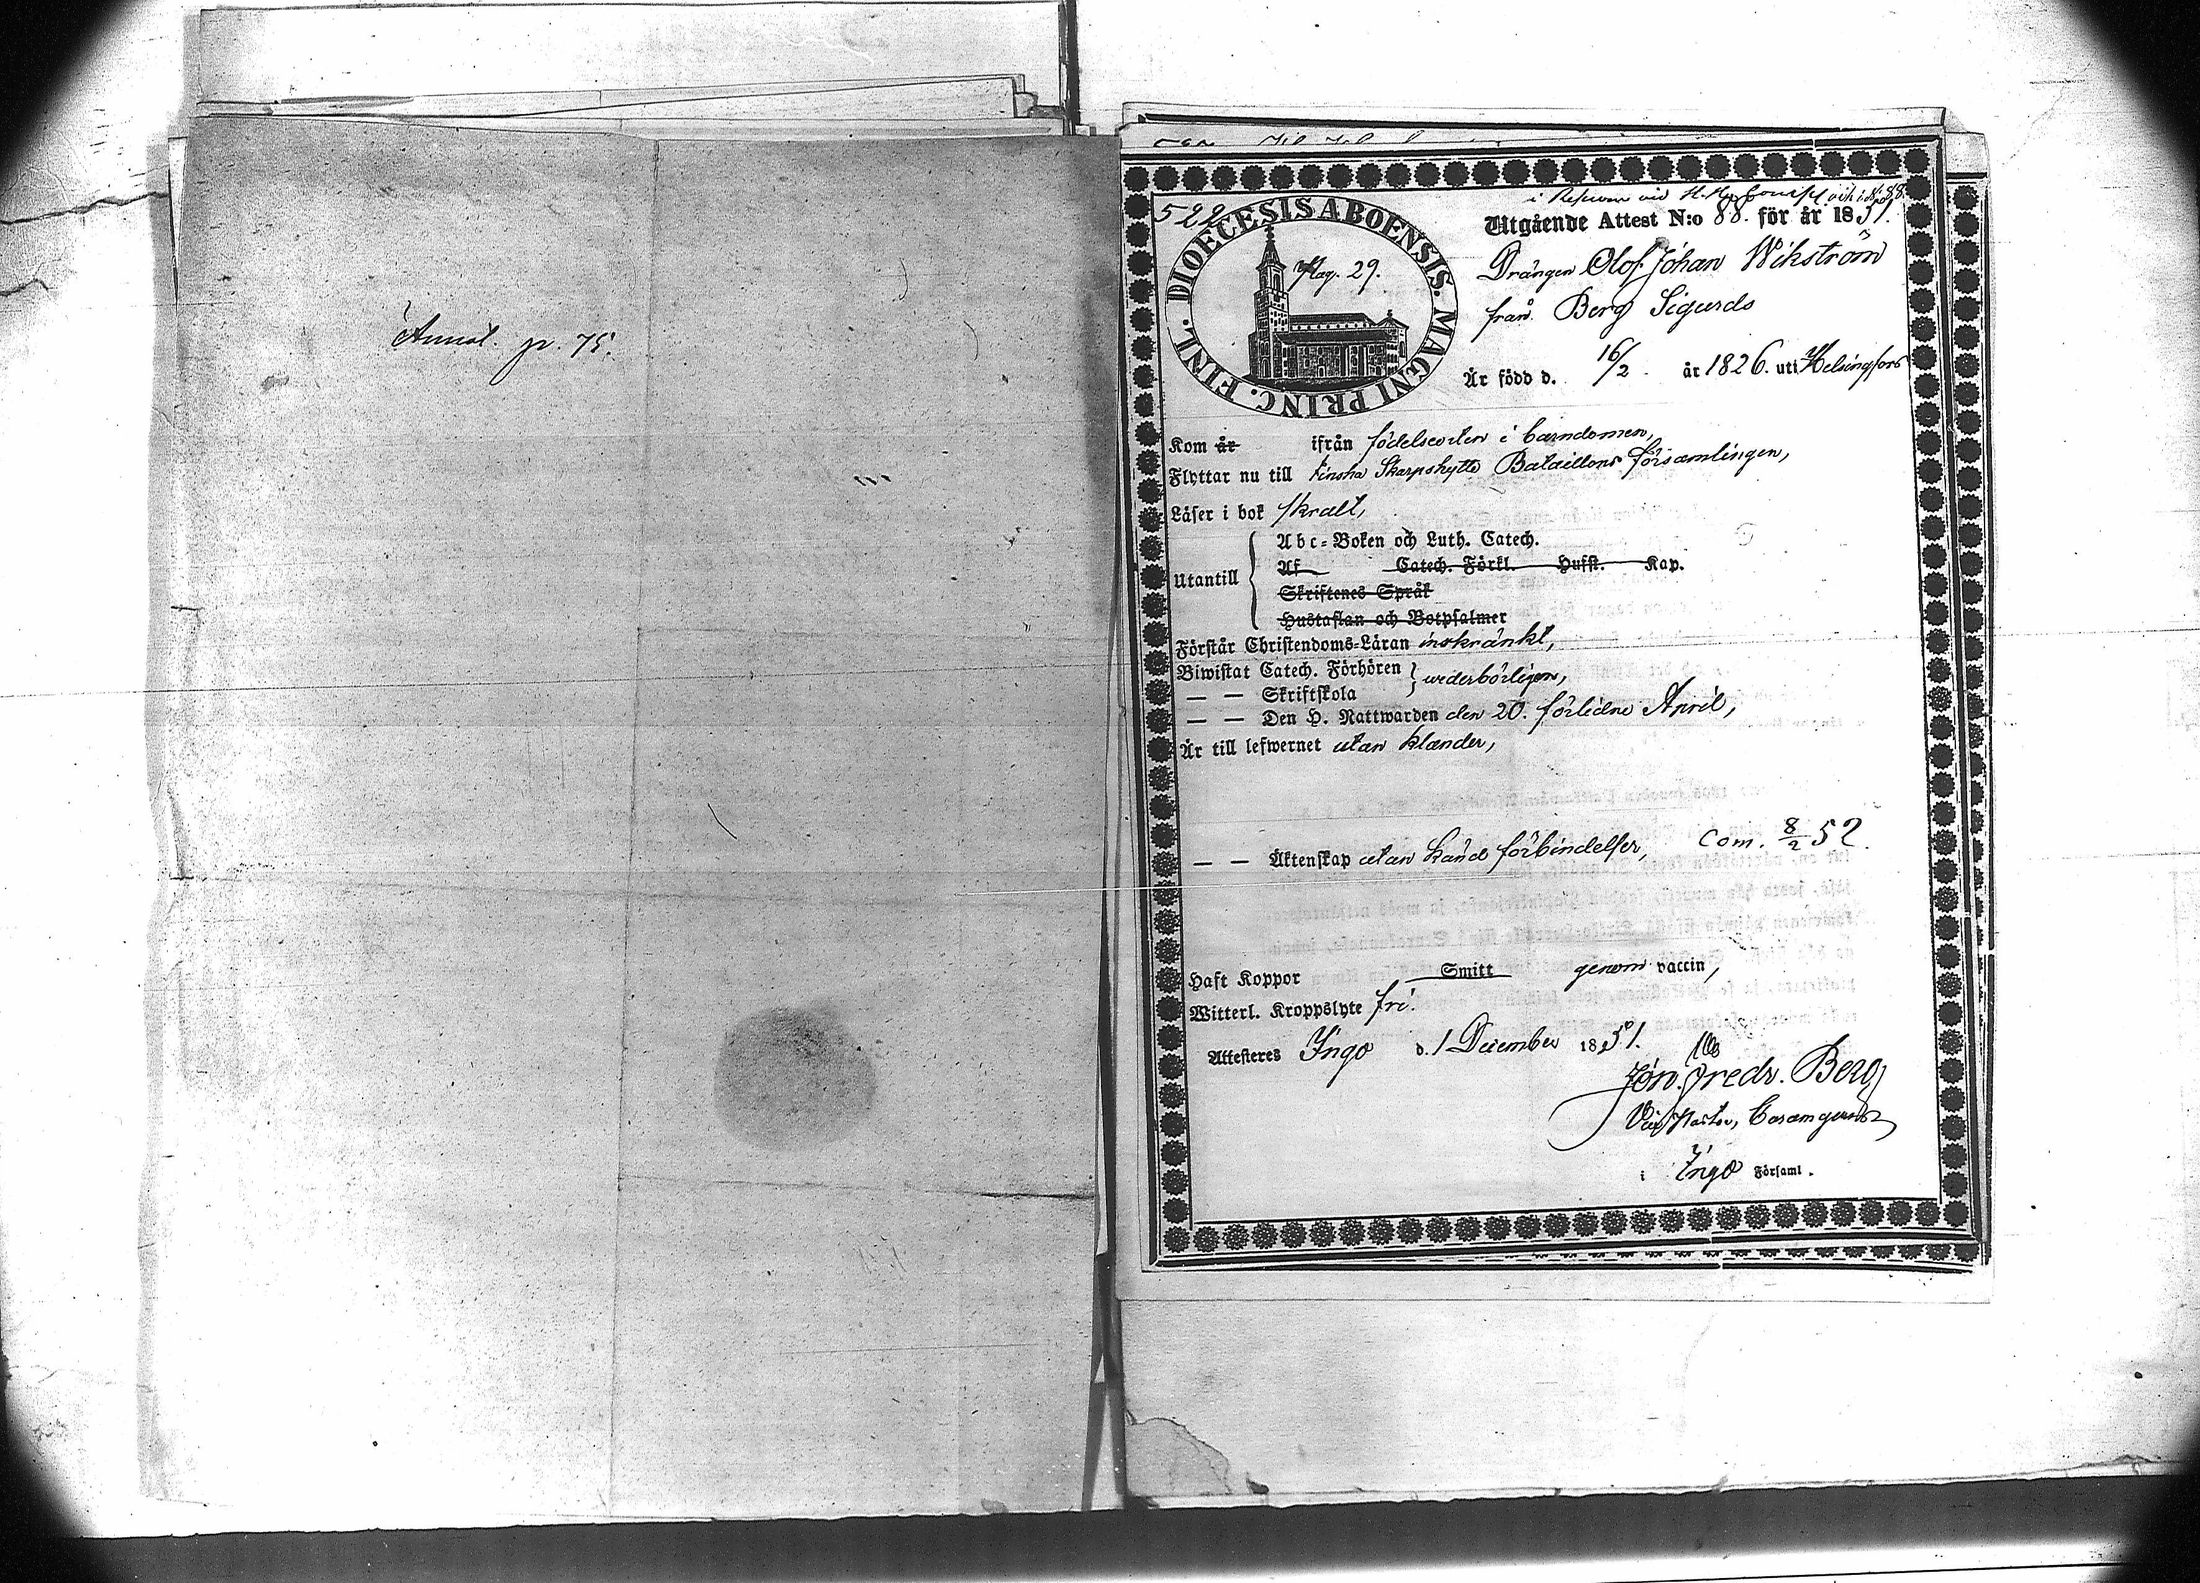 Annot. p. 75.
522
DIOECESIS ABOENSIS. MAGNI PRINC. FINL.
Pag. 29.
Utgående Attest N:o 88. för år 1851.
Drängen Olof Johan Wikström
från Berg Sigurds
Är född d. 16/2 år 1826. uti Helsingfors
Kom år ifrån födelseorten i barndomen,
Flyttar nu till Finska Skarpskytte Bataillons församlingen,
Läser i bok skralt,
Utantill
Abc-Boken och Luth. Catech.
Af Catech. Förkl. Hufst. Kap.
Skriftenes Språk
Hustaflan och Botpsalmer
Förstår Christendoms-Läran inskränkt,
Biwistat Catech. Förhören
— — Skriftskola
wederbörligen,
— — Den H. Nattwarden den 20. förlidne April,
Är till lefwernet utan klander,
— — Äktenskap utan känd förbindelse, Com. 8/2 52.
Haft Koppor Smitt genom vaccin,
Witterl. Kroppslyte fri.
Attesteras Ingo d. 1 December 1851.
Jon. Fredr. Berg
Vice Pastor,
i Ingo Församl.